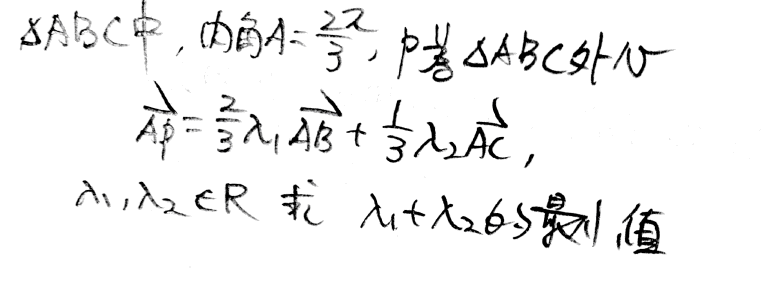 △ABC中, 内角A=2π/3, P是△ABC外心
\overrightarrow{AP}=2/3λ₁\overrightarrow{AB}+1/3λ₂\overrightarrow{AC},
λ₁,λ₂∈R 求 λ₁+λ₂的最小值